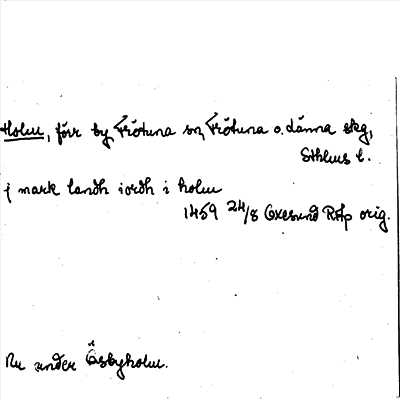 Holm, förr by, Frötuna sn, Frötuna o. Länna skg,
Sthlms l.
j mark landh iordh i holm
1459 24/8 Oxesund RAp orig.
Nu under Össbyholm.